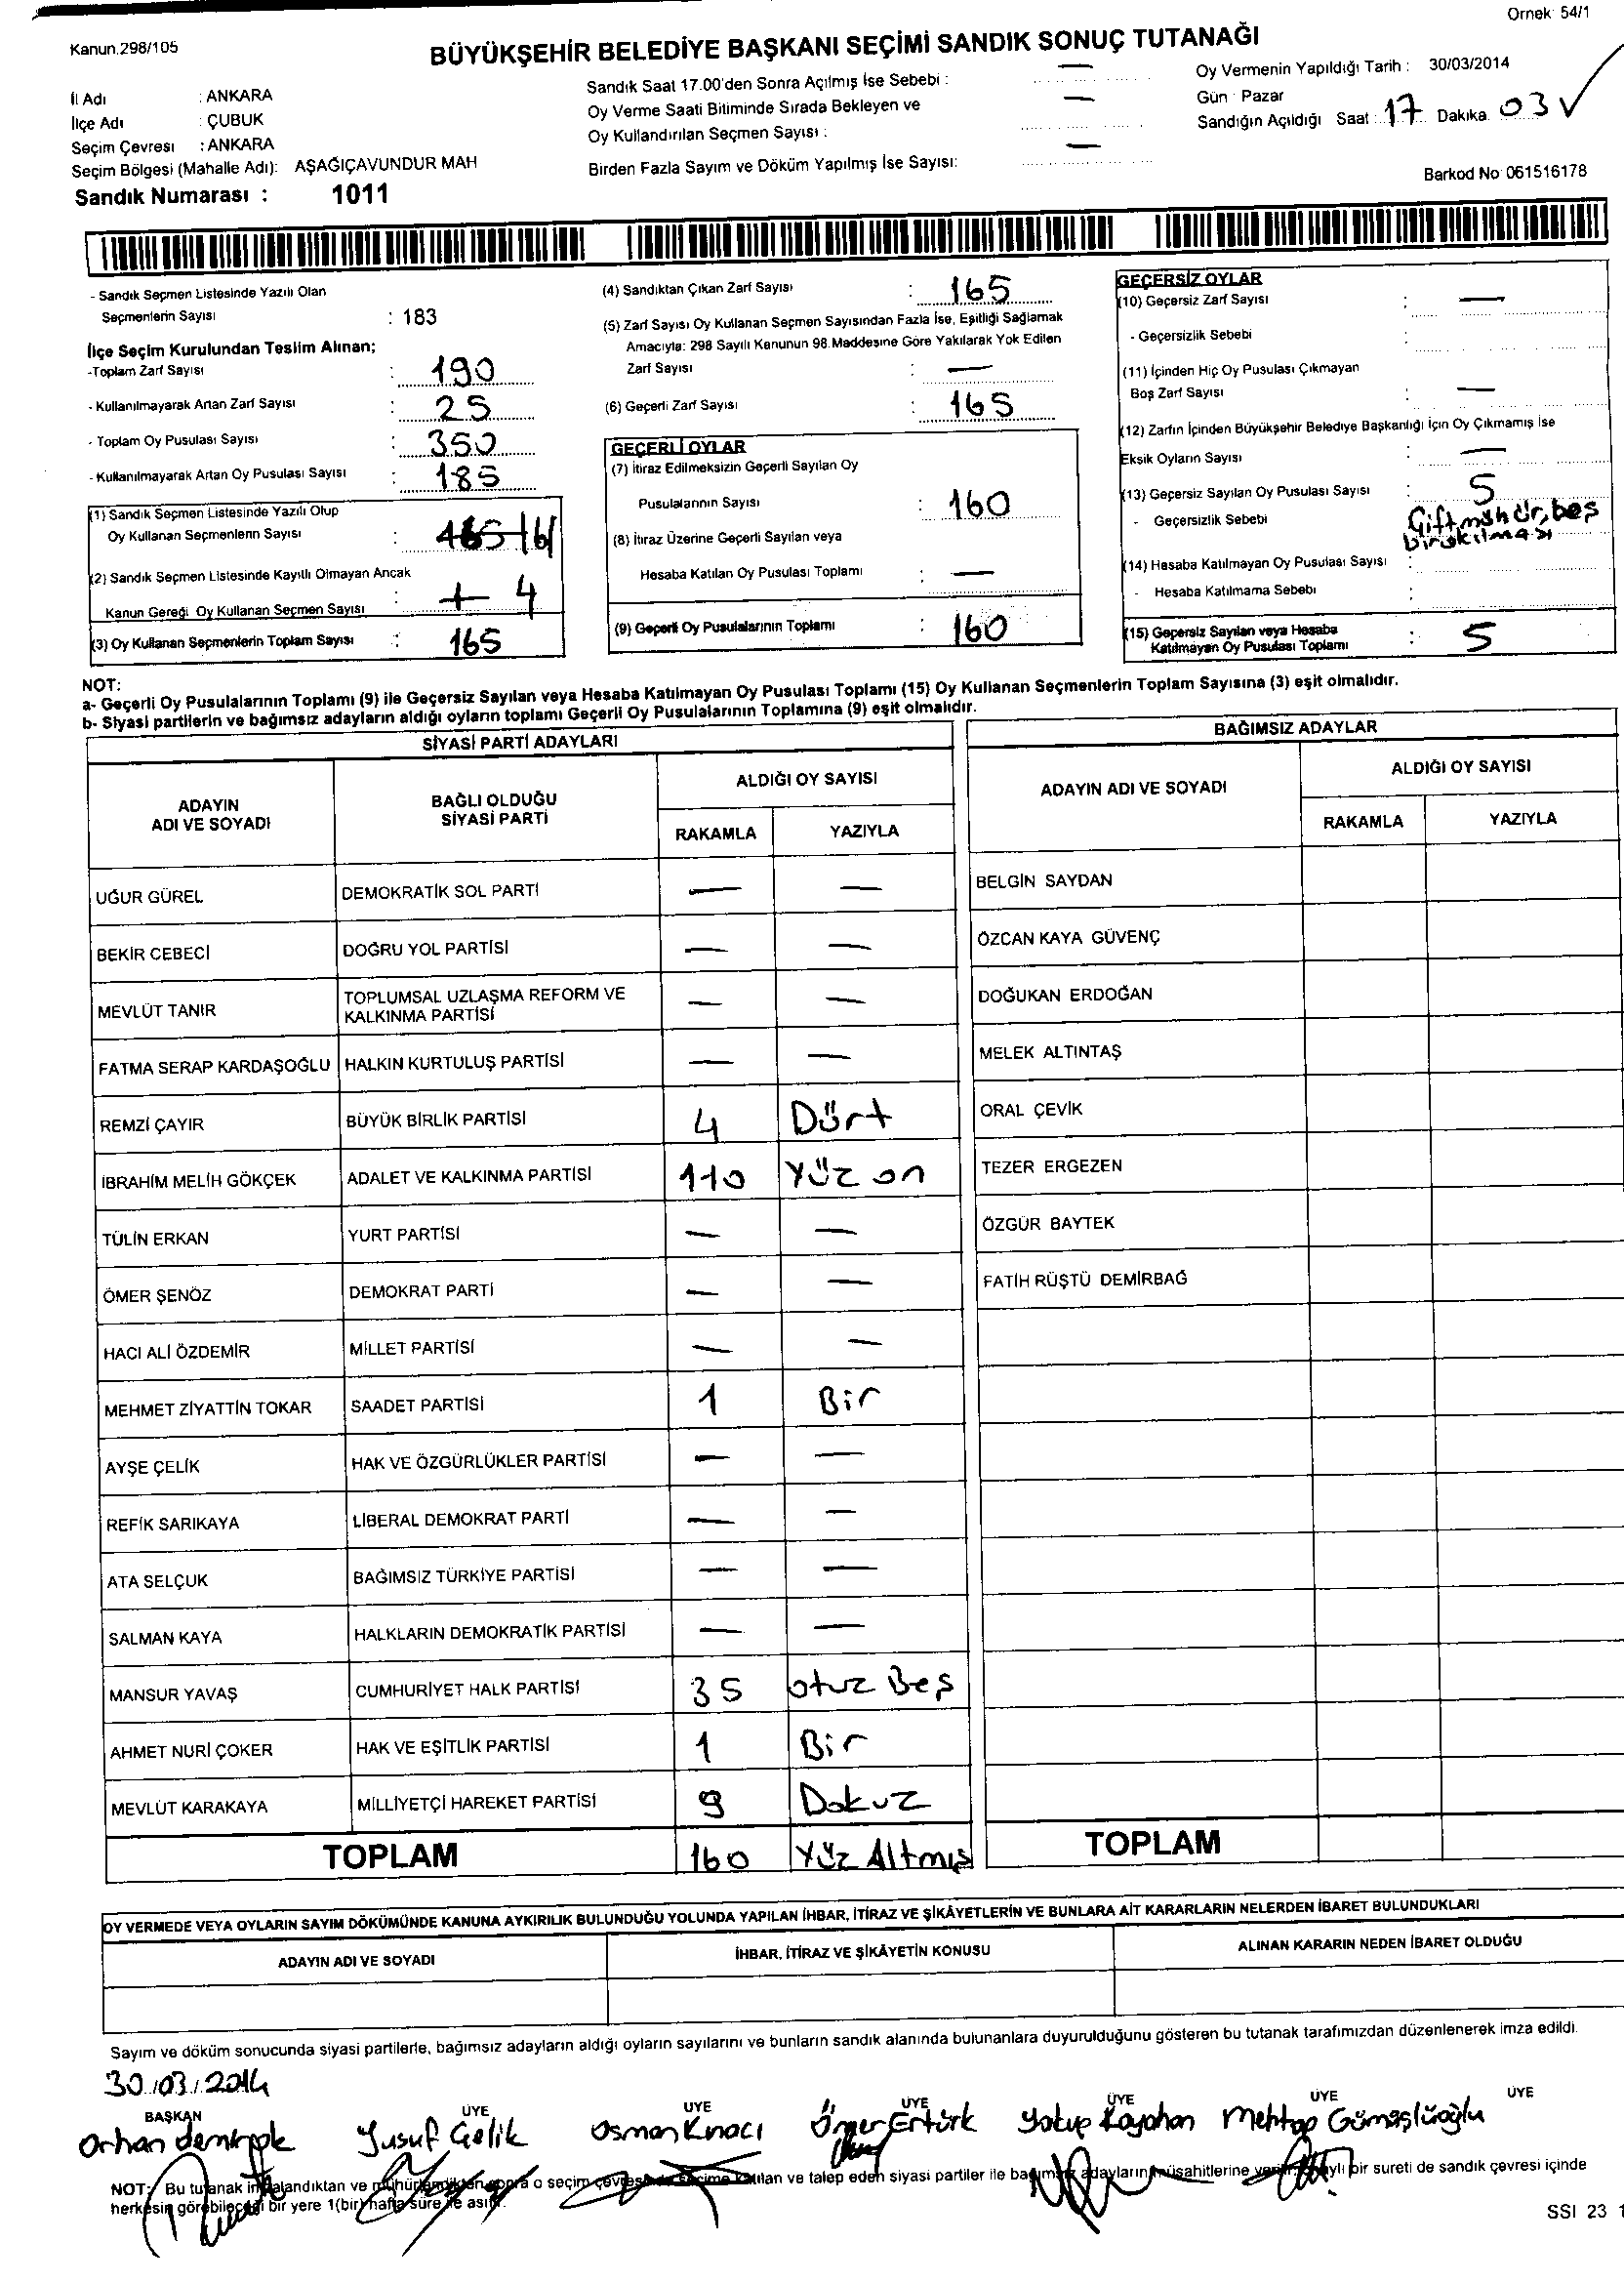 Örnek: 54/1
Kanun.298/105
BÜYÜKŞEHİR BELEDİYE BAŞKANI SEÇİMİ SANDIK SONUÇ TUTANAĞI
İl Adı : ANKARA
İlçe Adı : ÇUBUK
Seçim Çevresi : ANKARA
Seçim Bölgesi (Mahalle Adı): AŞAĞIÇAVUNDUR MAH
Sandık Numarası : 1011
Sandık Saat 17.00'den Sonra Açılmış İse Sebebi : —
Oy Verme Saati Bitiminde Sırada Bekleyen ve
Oy Kullandırılan Seçmen Sayısı : —
Birden Fazla Sayım ve Döküm Yapılmış İse Sayısı: —
Oy Vermenin Yapıldığı Tarih : 30/03/2014
Gün : Pazar
Sandığın Açıldığı Saat : 17 Dakika 03
Barkod No: 061516178
- Sandık Seçmen Listesinde Yazılı Olan
Seçmenlerin Sayısı : 183
İlçe Seçim Kurulundan Teslim Alınan;
-Toplam Zarf Sayısı : 190
- Kullanılmayarak Artan Zarf Sayısı : 25
- Toplam Oy Pusulası Sayısı : 350
- Kullanılmayarak Artan Oy Pusulası Sayısı : 185
(1) Sandık Seçmen Listesinde Yazılı Olup
Oy Kullanan Seçmenlerin Sayısı : 165 161
(2) Sandık Seçmen Listesinde Kayıtlı Olmayan Ancak
Kanun Gereği Oy Kullanan Seçmen Sayısı : + 4
(3) Oy Kullanan Seçmenlerin Toplam Sayısı : 165
(4) Sandıktan Çıkan Zarf Sayısı : 165
(5) Zarf Sayısı Oy Kullanan Seçmen Sayısından Fazla İse, Eşitliği Sağlamak
Amacıyla: 298 Sayılı Kanunun 98.Maddesine Göre Yakılarak Yok Edilen
Zarf Sayısı : —
(6) Geçerli Zarf Sayısı : 165
GEÇERLİ OYLAR
(7) İtiraz Edilmeksizin Geçerli Sayılan Oy
Pusulalarının Sayısı : 160
(8) İtiraz Üzerine Geçerli Sayılan veya
Hesaba Katılan Oy Pusulası Toplamı : —
(9) Geçerli Oy Pusulalarının Toplamı : 160
GEÇERSİZ OYLAR
(10) Geçersiz Zarf Sayısı : —
- Geçersizlik Sebebi :
(11) İçinden Hiç Oy Pusulası Çıkmayan
Boş Zarf Sayısı : —
(12) Zarfın İçinden Büyükşehir Belediye Başkanlığı İçin Oy Çıkmamış İse
Eksik Oyların Sayısı : —
(13) Geçersiz Sayılan Oy Pusulası Sayısı : 5
- Geçersizlik Sebebi Çift mühür, boş
bırakılması
(14) Hesaba Katılmayan Oy Pusulası Sayısı :
- Hesaba Katılmama Sebebi :
(15) Geçersiz Sayılan veya Hesaba
Katılmayan Oy Pusulası Toplamı : 5
NOT:
a- Geçerli Oy Pusulalarının Toplamı (9) ile Geçersiz Sayılan veya Hesaba Katılmayan Oy Pusulası Toplamı (15) Oy Kullanan Seçmenlerin Toplam Sayısına (3) eşit olmalıdır.
b- Siyasi partilerin ve bağımsız adayların aldığı oyların toplamı Geçerli Oy Pusulalarının Toplamına (9) eşit olmalıdır.
SİYASİ PARTİ ADAYLARI
ADAYIN ADI VE SOYADI BAĞLI OLDUĞU SİYASİ PARTİ ALDIĞI OY SAYISI
RAKAMLA YAZIYLA
UĞUR GÜREL DEMOKRATİK SOL PARTİ — —
BEKİR CEBECİ DOĞRU YOL PARTİSİ — —
MEVLÜT TANIR TOPLUMSAL UZLAŞMA REFORM VE KALKINMA PARTİSİ — —
FATMA SERAP KARDAŞOĞLU HALKIN KURTULUŞ PARTİSİ — —
REMZİ ÇAYIR BÜYÜK BİRLİK PARTİSİ 4 Dört
İBRAHİM MELİH GÖKÇEK ADALET VE KALKINMA PARTİSİ 110 Yüz on
TÜLİN ERKAN YURT PARTİSİ — —
ÖMER ŞENÖZ DEMOKRAT PARTİ — —
HACI ALİ ÖZDEMİR MİLLET PARTİSİ — —
MEHMET ZİYATTİN TOKAR SAADET PARTİSİ 1 Bir
AYŞE ÇELİK HAK VE ÖZGÜRLÜKLER PARTİSİ — —
REFİK SARIKAYA LİBERAL DEMOKRAT PARTİ — —
ATA SELÇUK BAĞIMSIZ TÜRKİYE PARTİSİ — —
SALMAN KAYA HALKLARIN DEMOKRATİK PARTİSİ — —
MANSUR YAVAŞ CUMHURİYET HALK PARTİSİ 35 otuz Beş
AHMET NURİ ÇOKER HAK VE EŞİTLİK PARTİSİ 1 Bir
MEVLÜT KARAKAYA MİLLİYETÇİ HAREKET PARTİSİ 9 Dokuz
TOPLAM 160 Yüz Altmış
BAĞIMSIZ ADAYLAR
ADAYIN ADI VE SOYADI ALDIĞI OY SAYISI
RAKAMLA YAZIYLA
BELGİN SAYDAN
ÖZCAN KAYA GÜVENÇ
DOĞUKAN ERDOĞAN
MELEK ALTINTAŞ
ORAL ÇEVİK
TEZER ERGEZEN
ÖZGÜR BAYTEK
FATİH RÜŞTÜ DEMİRBAĞ
TOPLAM
OY VERMEDE VEYA OYLARIN SAYIM DÖKÜMÜNDE KANUNA AYKIRILIK BULUNDUĞU YOLUNDA YAPILAN İHBAR, İTİRAZ VE ŞİKÂYETLERİN VE BUNLARA AİT KARARLARIN NELERDEN İBARET BULUNDUKLARI
ADAYIN ADI VE SOYADI İHBAR, İTİRAZ VE ŞİKÂYETİN KONUSU ALINAN KARARIN NEDEN İBARET OLDUĞU
Sayım ve döküm sonucunda siyasi partilerle, bağımsız adayların aldığı oyların sayılarını ve bunların sandık alanında bulunanlara duyurulduğunu gösteren bu tutanak tarafımızdan düzenlenerek imza edildi.
30/03/2014
BAŞKAN ÜYE ÜYE ÜYE ÜYE ÜYE ÜYE
Orhan Yusuf Çelik Osman Kınacı Ömer Ertürk Yakup Kayahan Mehtap Gümüşlüoğlu
NOT: Bu tutanak imzalandıktan ve mühürlendikten sonra o seçim çevresinde seçime katılan ve talep eden siyasi partiler ile bağımsız adayların müşahitlerine verilir. bir sureti de sandık çevresi içinde
herkesin görebileceği bir yere 1(bir) hafta süre ile asılır.
SSI 23